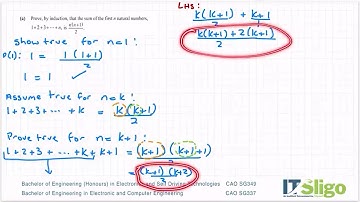 (a) Prove, by induction, that the sum of the first n natural numbers,
1 + 2 + 3 + ⋯ + n, is n(n+1)/2
Show true for n=1:
P(1): 1 = 1(1+1)/2
1 = 1 ✓
Assume true for n=k:
1+2+3+ ⋯ +k = k(k+1)/2
Prove true for n=k+1:
1+2+3+ ⋯ +k+k+1 = (k+1)(k+1+1)/2
= (k+1)(k+2)/2
LHS:
k(k+1)/2 + k+1/1
k(k+1)+2(k+1)/2
Bachelor of Engineering (Honours) in Electronic and Self Driving Technologies CAO SG349
Bachelor of Engineering in Electronic and CAO SG337
IT Sligo